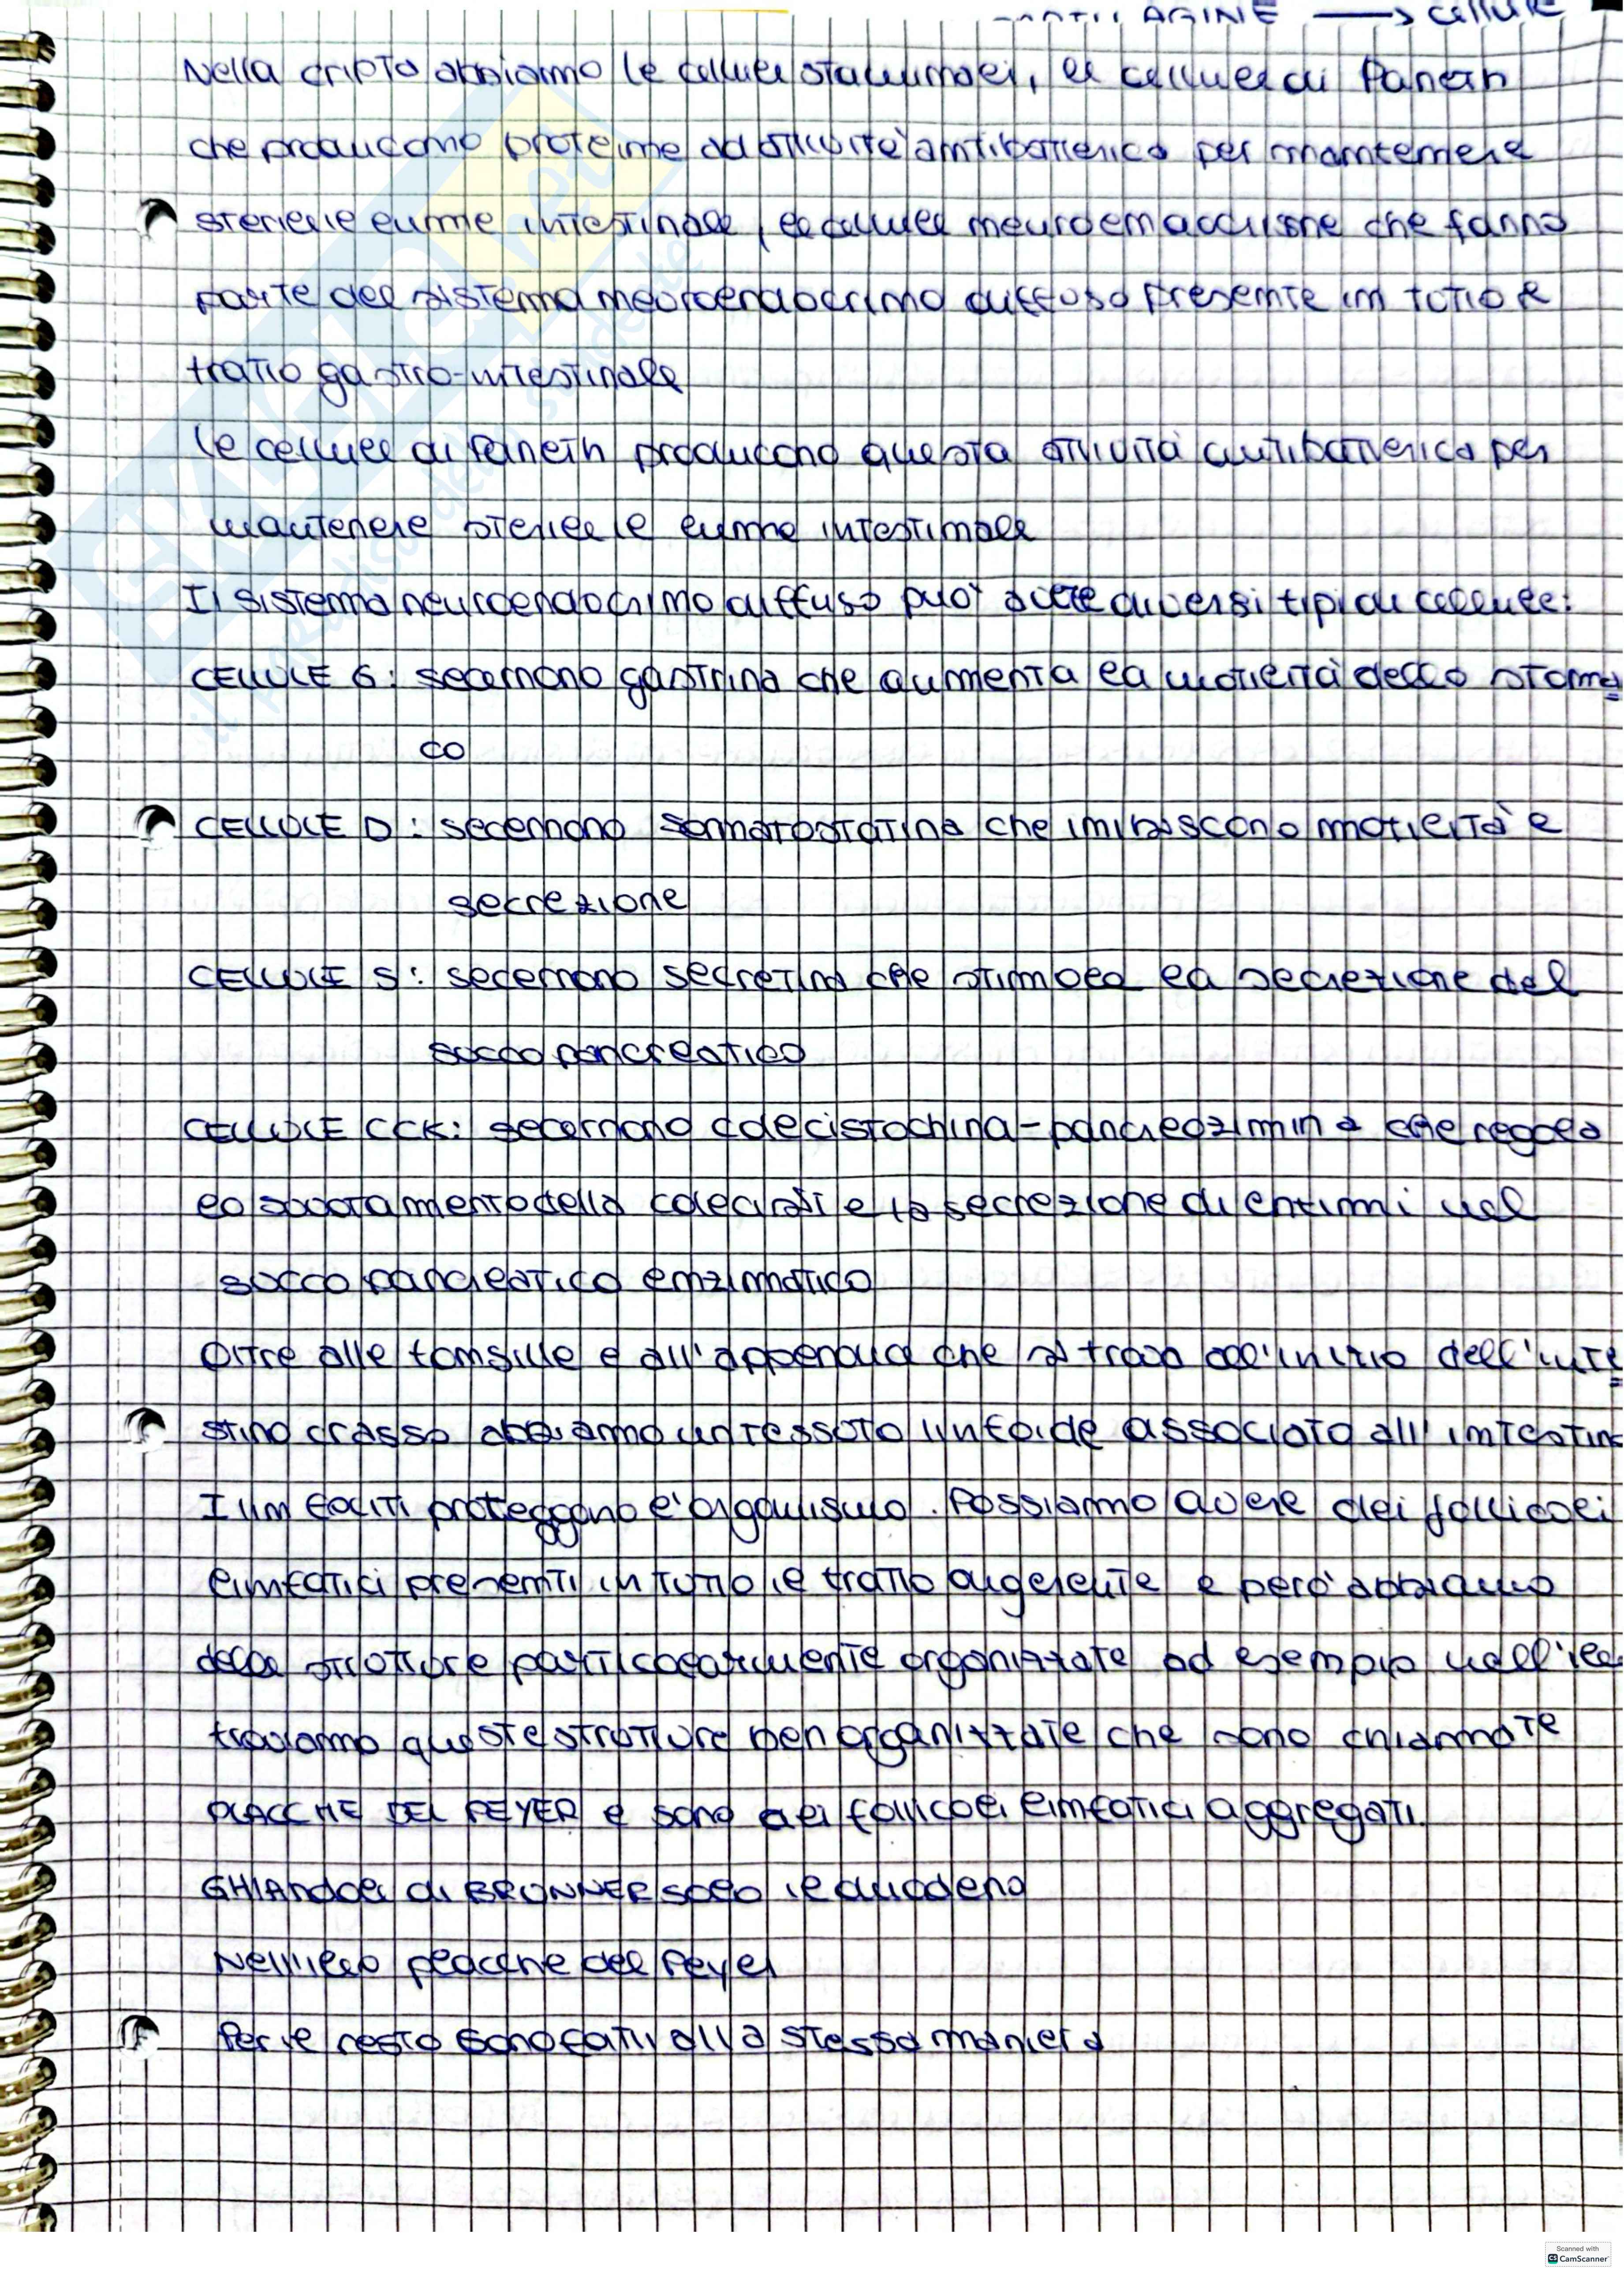 CARTILAGINE → cellule
Nella cripta abbiamo le cellule staminali, le cellule di Paneth
che producono proteine ad attività antibatterica per mantenere
sterile il lume intestinale, le cellule neuroendocrine che fanno
parte del sistema neuroendocrino diffuso presente in tutto il
tratto gastro-intestinale
Le cellule di Paneth producono questa attività antibatterica per
mantenere sterile il lume intestinale
Il sistema neuroendocrino diffuso può avere diversi tipi di cellule:
CELLULE G: secernono gastrina che aumenta la motilità dello stoma
co
CELLULE D: secernono somatostatina che inibiscono motilità e
secrezione
CELLULE S: secernono secretina che stimola la secrezione del
succo pancreatico
CELLULE CCK: secernono colecistochina-pancreozimina che regola
lo svuotamento della colecisti e la secrezione di enzimi nel
succo pancreatico enzimatico
Oltre alle tonsille e all'appendice che si trova all'inizio dell'inte
stino crasso abbiamo un tessuto linfoide associato all'intestino
I linfociti proteggono l'organismo. Possiamo avere dei follicoli
linfatici presenti in tutto il tratto digerente e però abbiamo
delle strutture particolarmente organizzate ad esempio nell'ileo
troviamo queste strutture ben organizzate che sono chiamate
PLACCHE DEL PEYER e sono dei follicoli linfatici aggregati.
GHIANDOLE di BRUNNER solo il duodeno
Nell'ileo placche del Peyer
Per il resto sono fatti alla stessa maniera
SKUOLA.net
il paradiso dello studente
Scanned with
CS CamScanner